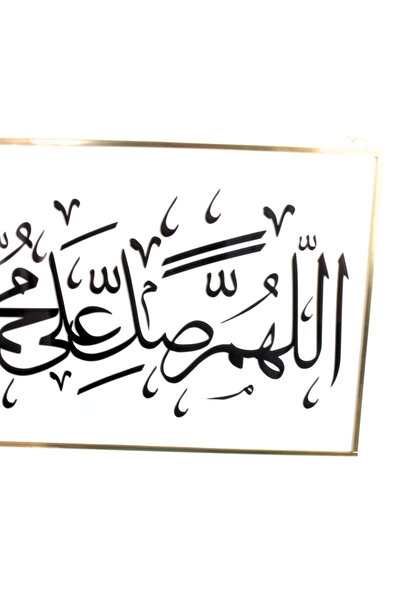 اللهم صل على